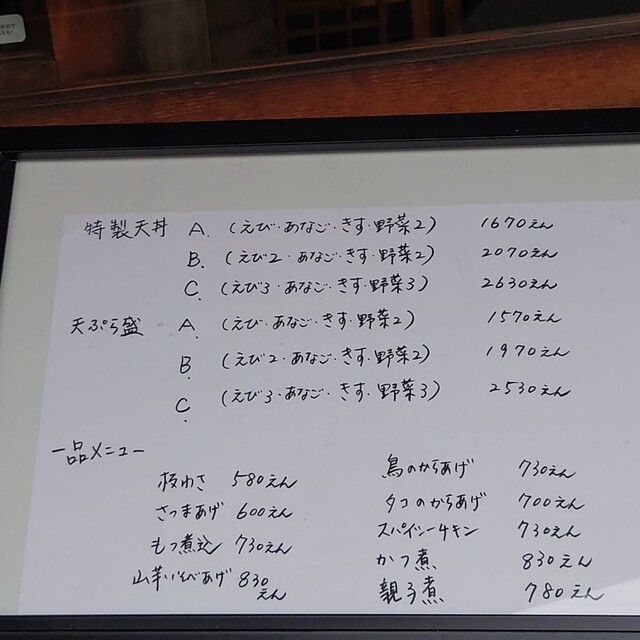 特製天丼 A. (えび・あなご・きす・野菜2) 1670えん
B. (えび2・あなご・きす・野菜2) 2070えん
C. (えび3・あなご・きす・野菜3) 2630えん
天ぷら盛 A. (えび・あなご・きす・野菜2) 1570えん
B (えび2・あなご・きす・野菜2) 1970えん
C. (えび3・あなご・きす・野菜3) 2530えん
一品メニュー
板わさ 580えん
さつまあげ 600えん
もつ煮込 730えん
山芋いそべあげ 830えん
鳥のからあげ 730えん
タコのからあげ 700えん
スパイシーチキン 730えん
かつ煮 830えん
親子煮 780えん